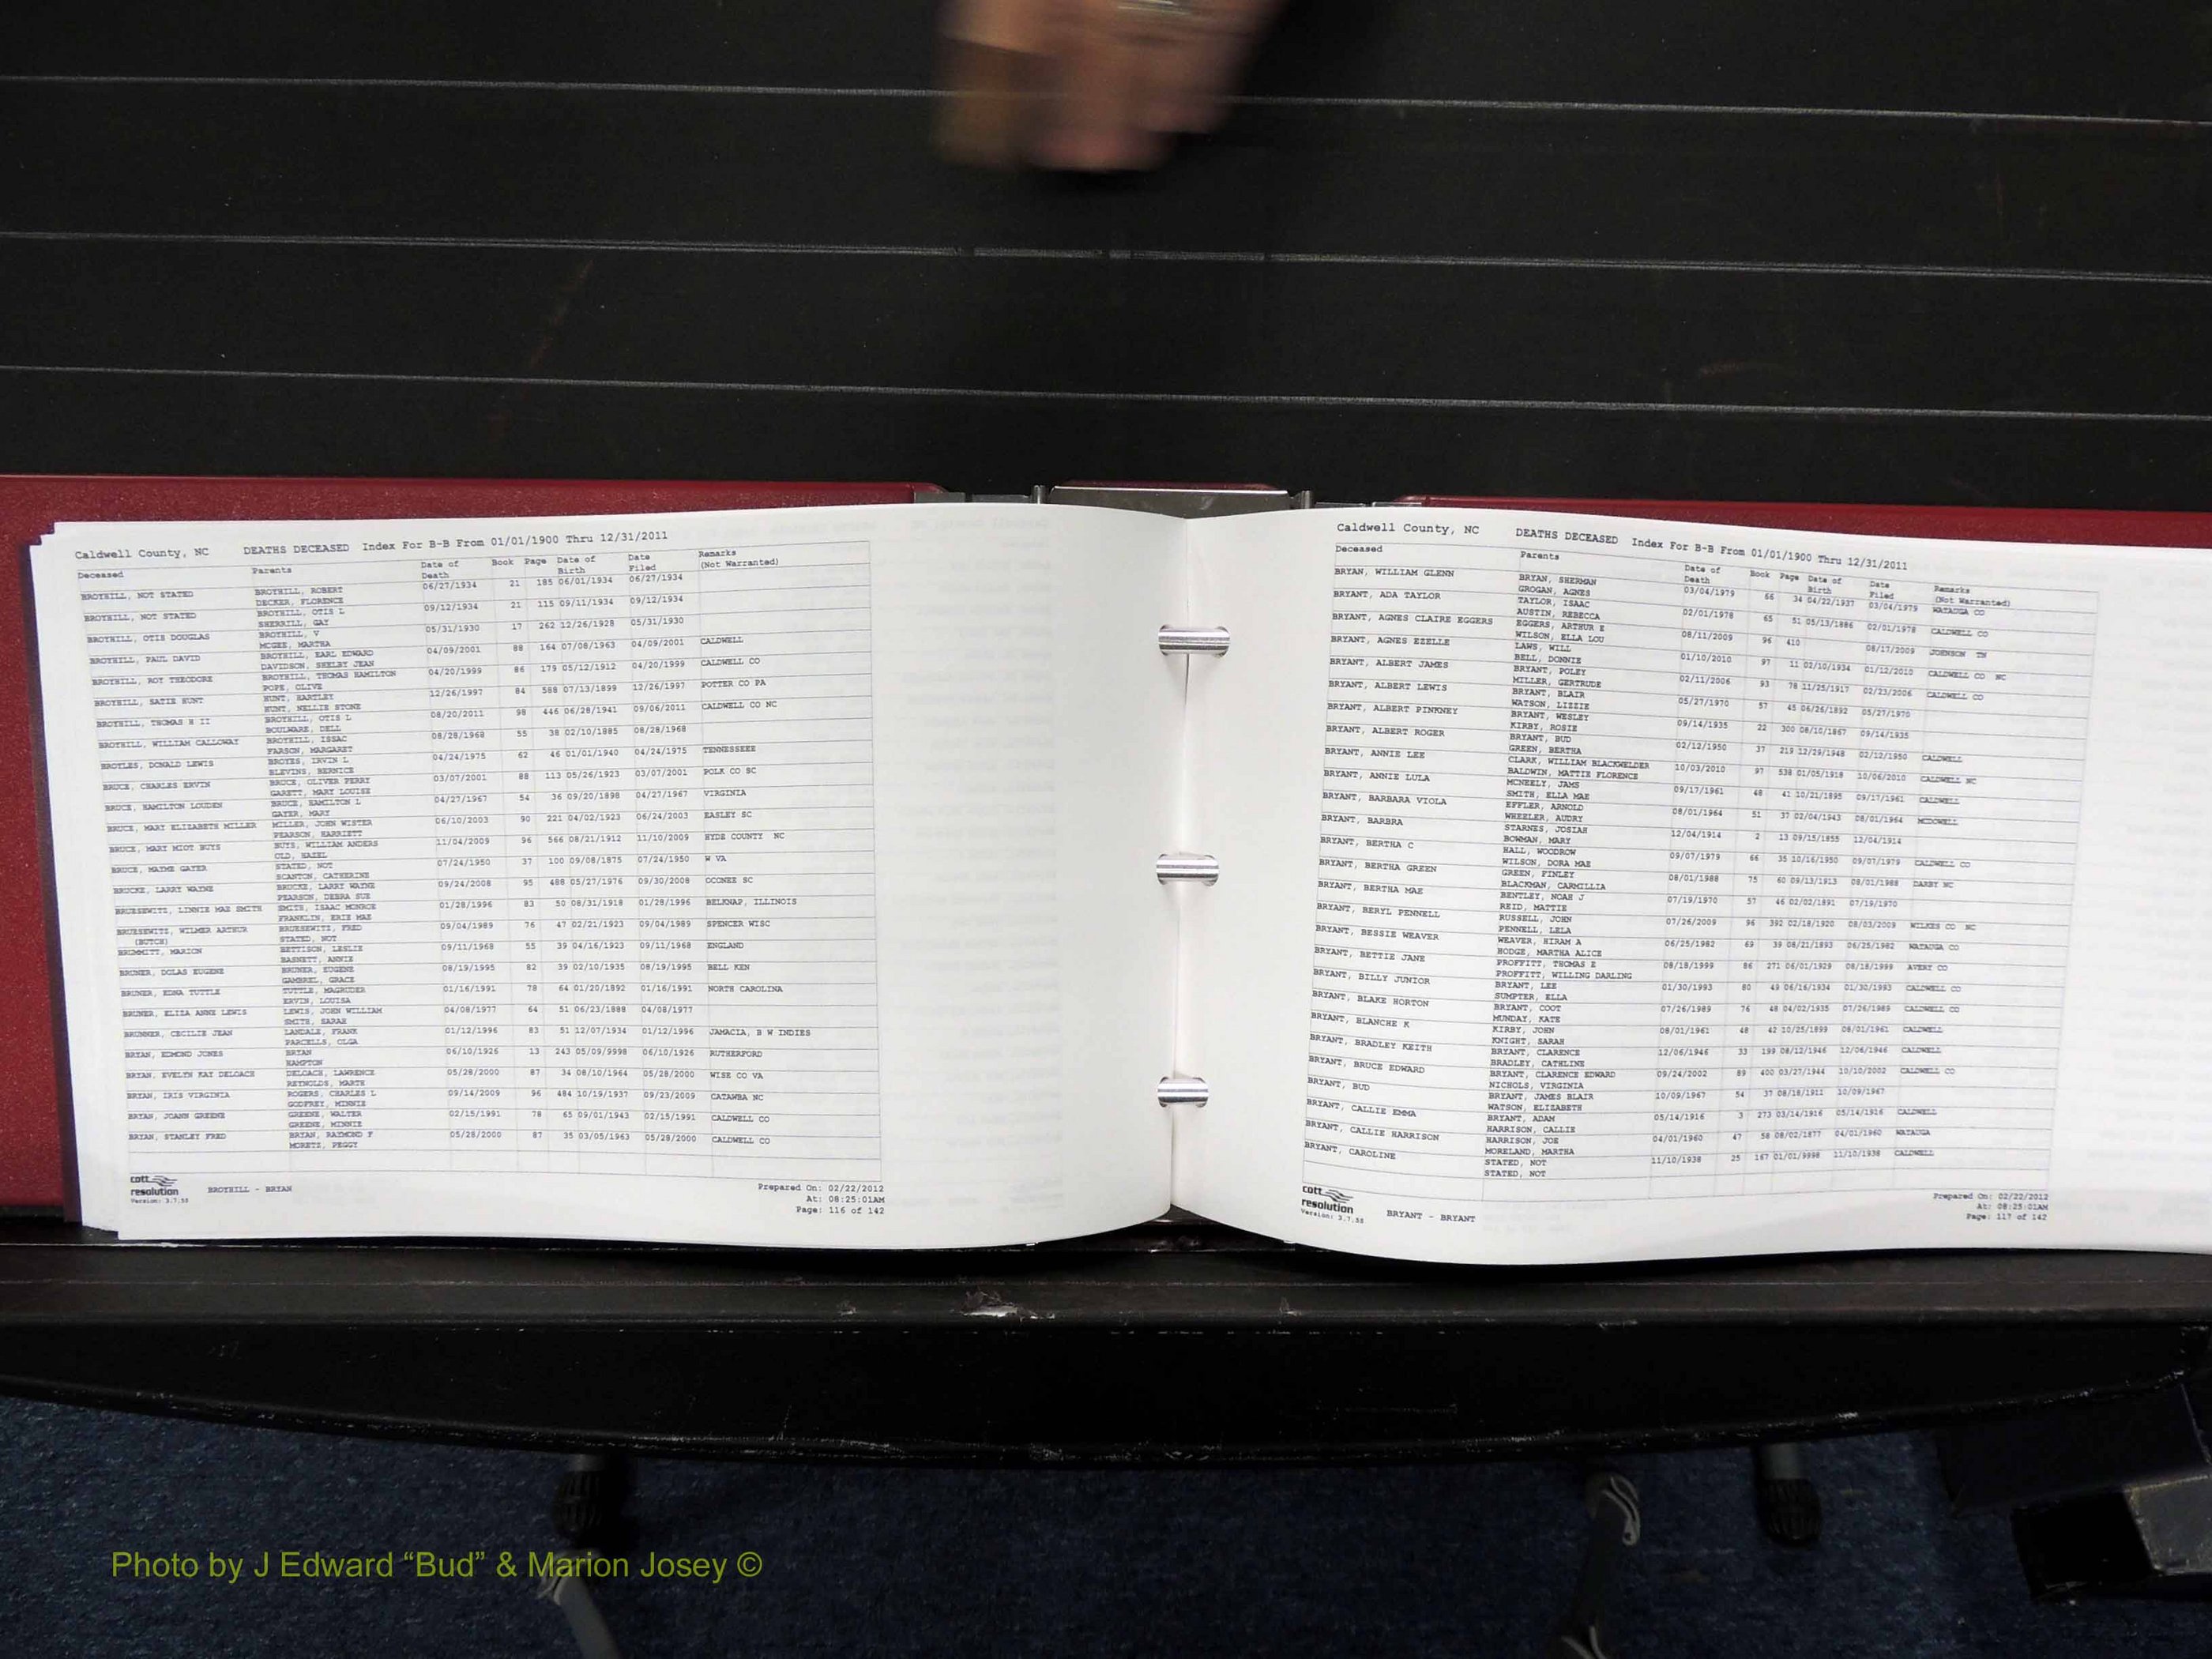 Caldwell County, NC DEATHS DECEASED Index For B-B From 01/01/1900 Thru 12/31/2011
Deceased Parents Date of Death Book Page Date of Birth Date Filed Remarks (Not Warranted)
BROYHILL, NOT STATED BROYHILL, ROBERT 06/27/1934 21 185 06/01/1934 06/27/1934
DECKER, FLORENCE
BROYHILL, NOT STATED BROYHILL, OTIS L 09/12/1934 21 115 09/11/1934 09/12/1934
SHERRILL, GAY
BROYHILL, OTIS DOUGLAS BROYHILL, V 05/31/1930 17 262 12/26/1928 05/31/1930
MCGEE, MARTHA
BROYHILL, PAUL DAVID BROYHILL, EARL EDWARD 04/09/2001 88 164 07/08/1963 04/09/2001 CALDWELL
DAVIDSON, SHELBY JEAN
BROYHILL, ROY THEODORE BROYHILL, THOMAS HAMILTON 04/20/1999 86 179 05/12/1912 04/20/1999 CALDWELL CO
POPE, OLIVE
BROYHILL, SATIE HUNT HUNT, HARTLEY 12/26/1997 84 588 07/13/1899 12/26/1997 POTTER CO PA
HUNT, NELLIE STONE
BROYHILL, THOMAS H II BROYHILL, OTIS L 08/20/2011 98 446 06/28/1941 09/06/2011 CALDWELL CO NC
BOULWARE, DELL
BROYHILL, WILLIAM CALLOWAY BROYHILL, ISSAC 08/28/1968 55 38 02/10/1885 08/28/1968
FARSON, MARGARET
BROYLES, DONALD LEWIS BROYES, IRVIN L 04/24/1975 62 46 01/01/1940 04/24/1975 TENNESSEEE
BLEVINS, BERNICE
BRUCE, CHARLES ERVIN BRUCE, OLIVER PERRY 03/07/2001 88 113 05/26/1923 03/07/2001 POLK CO SC
GARETT, MARY LOUISE
BRUCE, HAMILTON LOUDEN BRUCE, HAMILTON L 04/27/1967 54 36 09/20/1898 04/27/1967 VIRGINIA
GAYER, MARY
BRUCE, MARY ELIZABETH MILLER MILLER, JOHN WISTER 06/10/2003 90 221 04/02/1923 06/24/2003 EASLEY SC
PEARSON, HARRIETT
BRUCE, MARY MIOT BUYS BUYS, WILLIAM ANDERS 11/04/2009 96 566 08/21/1912 11/10/2009 HYDE COUNTY NC
OLD, HAZEL
BRUCE, MAYME GAYER STATED, NOT 07/24/1950 37 100 09/08/1875 07/24/1950 W VA
SCANTON, CATHERINE
BRUCKE, LARRY WAYNE BRUCKE, LARRY WAYNE 09/24/2008 95 488 05/27/1976 09/30/2008 OCONEE SC
PEARSON, DEBRA SUE
BRUESEWITZ, LINNIE MAE SMITH SMITH, ISAAC MONROE 01/28/1996 83 50 08/31/1918 01/28/1996 BELKNAP, ILLINOIS
FRANKLIN, ERIE MAE
BRUESEWITZ, WILMER ARTHUR BRUESEWITZ, FRED 09/04/1989 76 47 02/21/1923 09/04/1989 SPENCER WISC
(BUTCH) STATED, NOT
BRUMMITT, MARION BETTISON, LESLIE 09/11/1968 55 39 04/16/1923 09/11/1968 ENGLAND
BASNETT, ANNIE
BRUNER, DOLAS EUGENE BRUNER, EUGENE 08/19/1995 82 39 02/10/1935 08/19/1995 BELL KEN
GAMBREL, GRACE
BRUNER, EDNA TUTTLE TUTTLE, MAGRUDER 01/16/1991 78 64 01/20/1892 01/16/1991 NORTH CAROLINA
ERVIN, LOUISA
BRUNER, ELIZA ANNE LEWIS LEWIS, JOHN WILLIAM 04/08/1977 64 51 06/23/1888 04/08/1977
SMITH, SARAH
BRUNNER, CECILIE JEAN LANDALE, FRANK 01/12/1996 83 51 12/07/1934 01/12/1996 JAMACIA, B W INDIES
PARCELLS, OLGA
BRYAN, EDMOND JONES BRYAN 06/10/1926 13 243 05/09/9998 06/10/1926 RUTHERFORD
HAMPTON
BRYAN, EVELYN KAY DELOACH DELOACH, LAWRENCE 05/28/2000 87 34 08/10/1964 05/28/2000 WISE CO VA
REYNOLDS, MARTH
BRYAN, IRIS VIRGINIA ROGERS, CHARLES L 09/14/2009 96 484 10/19/1937 09/23/2009 CATAWBA NC
GODFREY, MINNIE
BRYAN, JOANN GREENE GREENE, WALTER 02/15/1991 78 65 09/01/1943 02/15/1991 CALDWELL CO
GREENE, MINNIE
BRYAN, STANLEY FRED BRYAN, RAYMOND F 05/28/2000 87 35 03/05/1963 05/28/2000 CALDWELL CO
MORETZ, PEGGY
cott
resolution
Version: 3.7.55
BROYHILL - BRYAN
Prepared On: 02/22/2012
At: 08:25:01AM
Page: 116 of 142
Caldwell County, NC DEATHS DECEASED Index For B-B From 01/01/1900 Thru 12/31/2011
Deceased Parents Date of Death Book Page Date of Birth Date Filed Remarks (Not Warranted)
BRYAN, WILLIAM GLENN BRYAN, SHERMAN 03/04/1979 66 34 04/22/1937 03/04/1979 WATAUGA CO
GROGAN, AGNES
BRYANT, ADA TAYLOR TAYLOR, ISAAC 02/01/1978 65 51 05/13/1886 02/01/1978 CALDWELL CO
AUSTIN, REBECCA
BRYANT, AGNES CLAIRE EGGERS EGGERS, ARTHUR E 08/11/2009 96 410 08/17/2009 JOHNSON TN
WILSON, ELLA LOU
BRYANT, AGNES EZELLE LAWS, WILL 01/10/2010 97 11 02/10/1934 01/12/2010 CALDWELL CO NC
BELL, DONNIE
BRYANT, ALBERT JAMES BRYANT, POLEY 02/11/2006 93 78 11/25/1917 02/23/2006 CALDWELL CO
MILLER, GERTRUDE
BRYANT, ALBERT LEWIS BRYANT, BLAIR 05/27/1970 57 45 06/26/1892 05/27/1970
WATSON, LIZZIE
BRYANT, ALBERT PINKNEY BRYANT, WESLEY 09/14/1935 22 300 08/10/1867 09/14/1935
KIRBY, ROSIE
BRYANT, ALBERT ROGER BRYANT, BUD 02/12/1950 37 219 12/29/1948 02/12/1950 CALDWELL
GREEN, BERTHA
BRYANT, ANNIE LEE CLARK, WILLIAM BLACKWELDER 10/03/2010 97 538 01/05/1918 10/06/2010 CALDWELL NC
BALDWIN, MATTIE FLORENCE
BRYANT, ANNIE LULA MCNEELY, JAMS 09/17/1961 48 41 10/21/1895 09/17/1961 CALDWELL
SMITH, ELLA MAE
BRYANT, BARBARA VIOLA EFFLER, ARNOLD 08/01/1964 51 37 02/04/1943 08/01/1964 MCDOWELL
WHEELER, AUDRY
BRYANT, BARBRA STARNES, JOSIAH 12/04/1914 2 13 09/15/1855 12/04/1914
BOWMAN, MARY
BRYANT, BERTHA C HALL, WOODROW 09/07/1979 66 35 10/16/1950 09/07/1979 CALDWELL CO
WILSON, DORA MAE
BRYANT, BERTHA GREEN GREEN, FINLEY 08/01/1988 75 60 09/13/1913 08/01/1988 DARBY NC
BLACKMAN, CARMILLIA
BRYANT, BERTHA MAE BENTLEY, NOAH J 07/19/1970 57 46 02/02/1891 07/19/1970
REID, MATTIE
BRYANT, BERYL PENNELL RUSSELL, JOHN 07/26/2009 96 392 02/18/1920 08/03/2009 WILKES CO NC
PENNELL, LELA
BRYANT, BESSIE WEAVER WEAVER, HIRAM A 06/25/1982 69 39 08/21/1893 06/25/1982 WATAUGA CO
HODGE, MARTHA ALICE
BRYANT, BETTIE JANE PROFFITT, THOMAS E 08/18/1999 86 271 06/01/1929 08/18/1999 AVERY CO
PROFFITT, WILLING DARLING
BRYANT, BILLY JUNIOR BRYANT, LEE 01/30/1993 80 49 06/16/1934 01/30/1993 CALDWELL CO
SUMPTER, ELLA
BRYANT, BLAKE HORTON BRYANT, COOT 07/26/1989 76 48 04/02/1935 07/26/1989 CALDWELL CO
MUNDAY, KATE
BRYANT, BLANCHE K KIRBY, JOHN 08/01/1961 48 42 10/25/1899 08/01/1961 CALDWELL
KNIGHT, SARAH
BRYANT, BRADLEY KEITH BRYANT, CLARENCE 12/06/1946 33 199 08/12/1946 12/06/1946 CALDWELL
BRADLEY, CATHLINE
BRYANT, BRUCE EDWARD BRYANT, CLARENCE EDWARD 09/24/2002 89 400 03/27/1944 10/10/2002 CALDWELL CO
NICHOLS, VIRGINIA
BRYANT, BUD BRYANT, JAMES BLAIR 10/09/1967 54 37 08/18/1911 10/09/1967
WATSON, ELIZABETH
BRYANT, CALLIE EMMA BRYANT, ADAM 05/14/1916 3 273 03/14/1916 05/14/1916 CALDWELL
HARRISON, CALLIE
BRYANT, CALLIE HARRISON HARRISON, JOE 04/01/1960 47 58 08/02/1877 04/01/1960 WATAUGA
MORELAND, MARTHA
BRYANT, CAROLINE STATED, NOT 11/10/1938 25 167 01/01/9998 11/10/1938 CALDWELL
STATED, NOT
cott
resolution
Version: 3.7.55
BRYANT - BRYANT
Prepared On: 02/22/2012
At: 08:25:01AM
Page: 117 of 142
Photo by J Edward “Bud” & Marion Josey ©